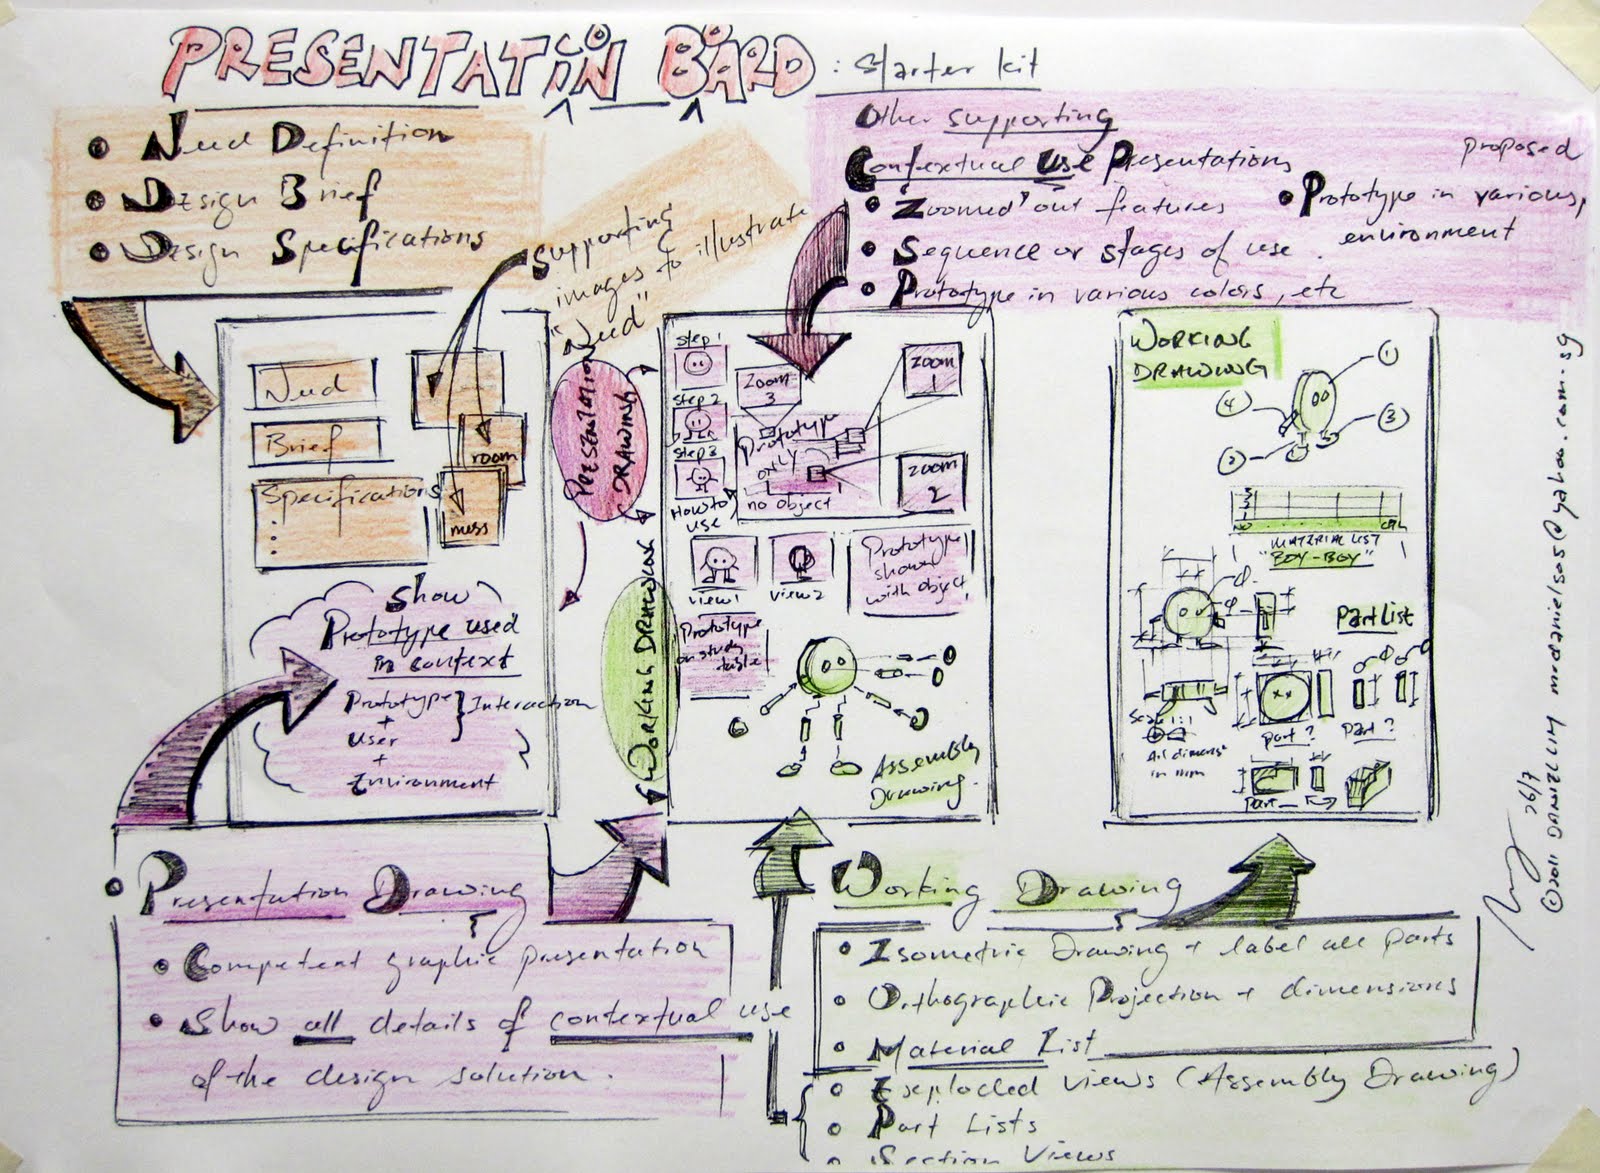 PRESENTATION BOARD : Starter kit
• Need Definition
• Design Brief
• Design Specifications
Supporting
images to illustrate
"Need"
Other supporting
Contextual Use Presentations
• Zoomed out features
• Sequence or stages of use.
• Prototype in various colors, etc
proposed
• Prototype in various
environment
Need
Brief
Specifications
room
mess
Show
Prototype used
in context
Prototype
+
User
+
Environment
Interaction
PRESENTATION
DRAWING
WORKING DRAWING
Step 1
Step 2
Step 3
How to
use
Zoom
3
Zoom
1
Zoom
2
Prototype
only
no object
view 1
view 2
Prototype
shown
with object
Prototype
on study
table
Assembly
Drawing.
WORKING
DRAWING
1
4
3
2
3
2
1
NO
MATERIAL LIST
"BOY-BOY"
Part List
Scale 1:1
All dimens
in mm
part ?
Part ?
Part
• Presentation Drawing
• Competent graphic presentation
• Show all details of contextual use
of the design solution.
Working Drawing
• Isometric Drawing + label all parts
• Orthographic Projection + dimensions
• Material List
• Exploded Views (Assembly Drawing)
• Part Lists
• Section Views
26/7
©2011 DANIEL LIM mrdanielsos@yahoo.com.sg